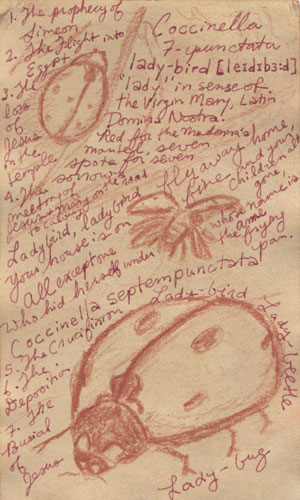 1. The prophecy of
Simeon
2. The Flight into
Egypt
3. The
loss
of
Jesus
in the
Temple
4. The
meeting of
Jesus & Mary on the road
to Calvary
Coccinella
7-punctata
lady-bird [leɪdɪbɜ:d]
"lady" in sense of
the Virgin Mary, Latin
Domina Nostra.
Red for the Madonna's
mantel, seven
spots for seven
sorrows
Ladybird, ladybird fly away home,
your house is on fire and your
children all
gone,
All except one whose name is
who hid herself under the frying
pan.
Coccinella septempunctata
Lady-bird
5. The Crucifixion
6. The
Deposition
7. The
Burial
of
Jesus
Lady-beetle
Lady-bug